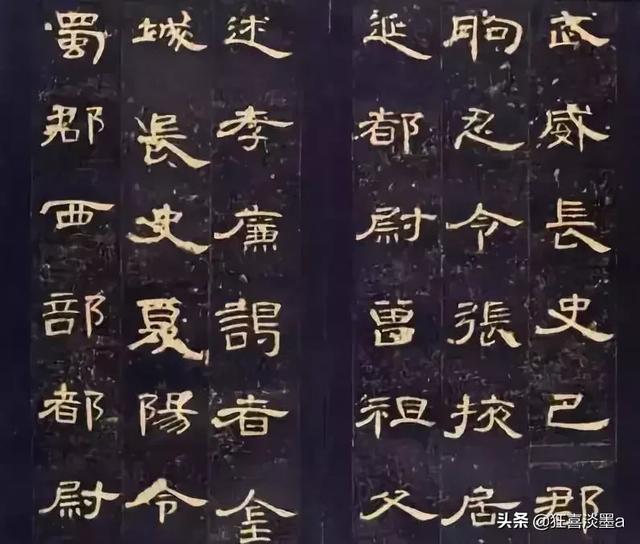 武威長史巴郡
朐忍令張掖居
延都尉曾祖父
述孝廉謁者金
城長史夏陽令
蜀郡西部都尉
头条 @狂喜淡墨a